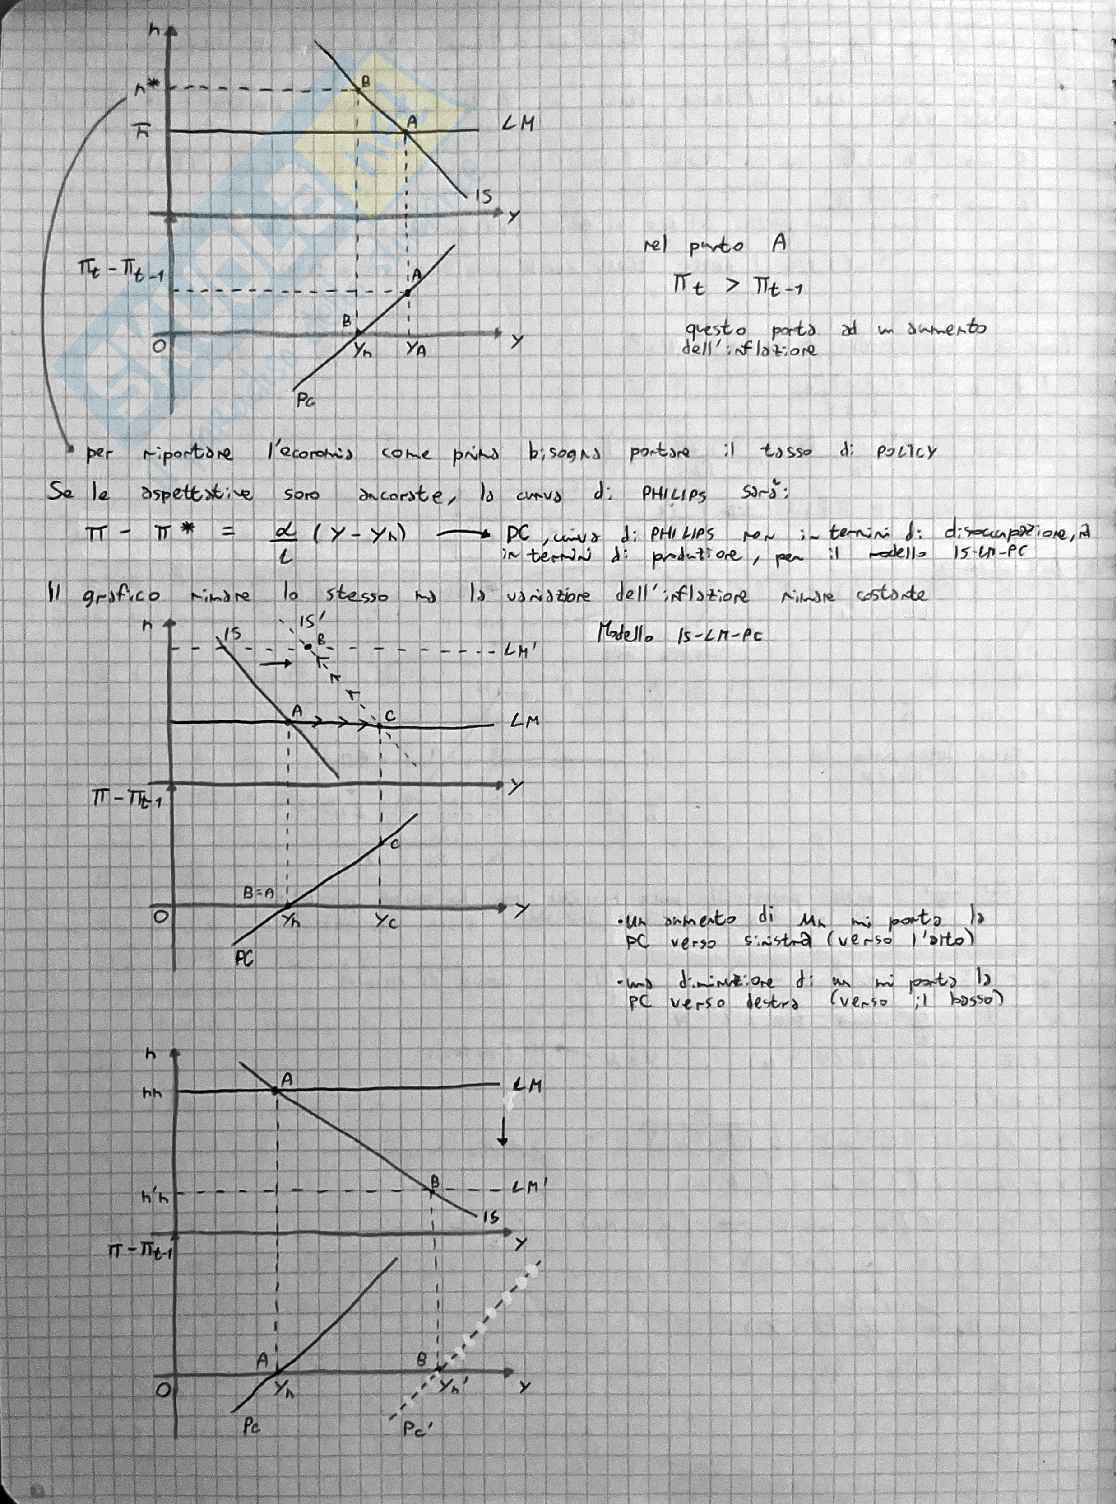 r
r*
B
r̄
A
LM
IS
Y
πt - πt-1
A
B
0
Yn
YA
Y
PC
nel punto A
πt > πt-1
questo porta ad un aumento
dell'inflazione
per riportare l'economia come prima bisogna portare il tasso di POLICY
Se le aspettative sono ancorate, la curva di PHILIPS sarà:
π - π* = α/L (Y - Yn) → PC, curva di PHILIPS non in termini di disoccupazione, ma
in termini di produzione, per il modello IS-LM-PC
Il grafico rimane lo stesso ma la variazione dell'inflazione rimane costante
Modello IS-LM-PC
r
IS
IS'
B
LM'
A
C
LM
Y
π - πt-1
C
B=A
0
Yn
Yc
Y
PC
• un aumento di un mi porta la
PC verso sinistra (verso l'alto)
• una diminuzione di un mi porta la
PC verso destra (verso il basso)
r
rn
A
LM
r'n
B
LM'
IS
Y
π - πt-1
A
B
0
Yn
Yn'
Y
PC
PC'
SKUOLA.net